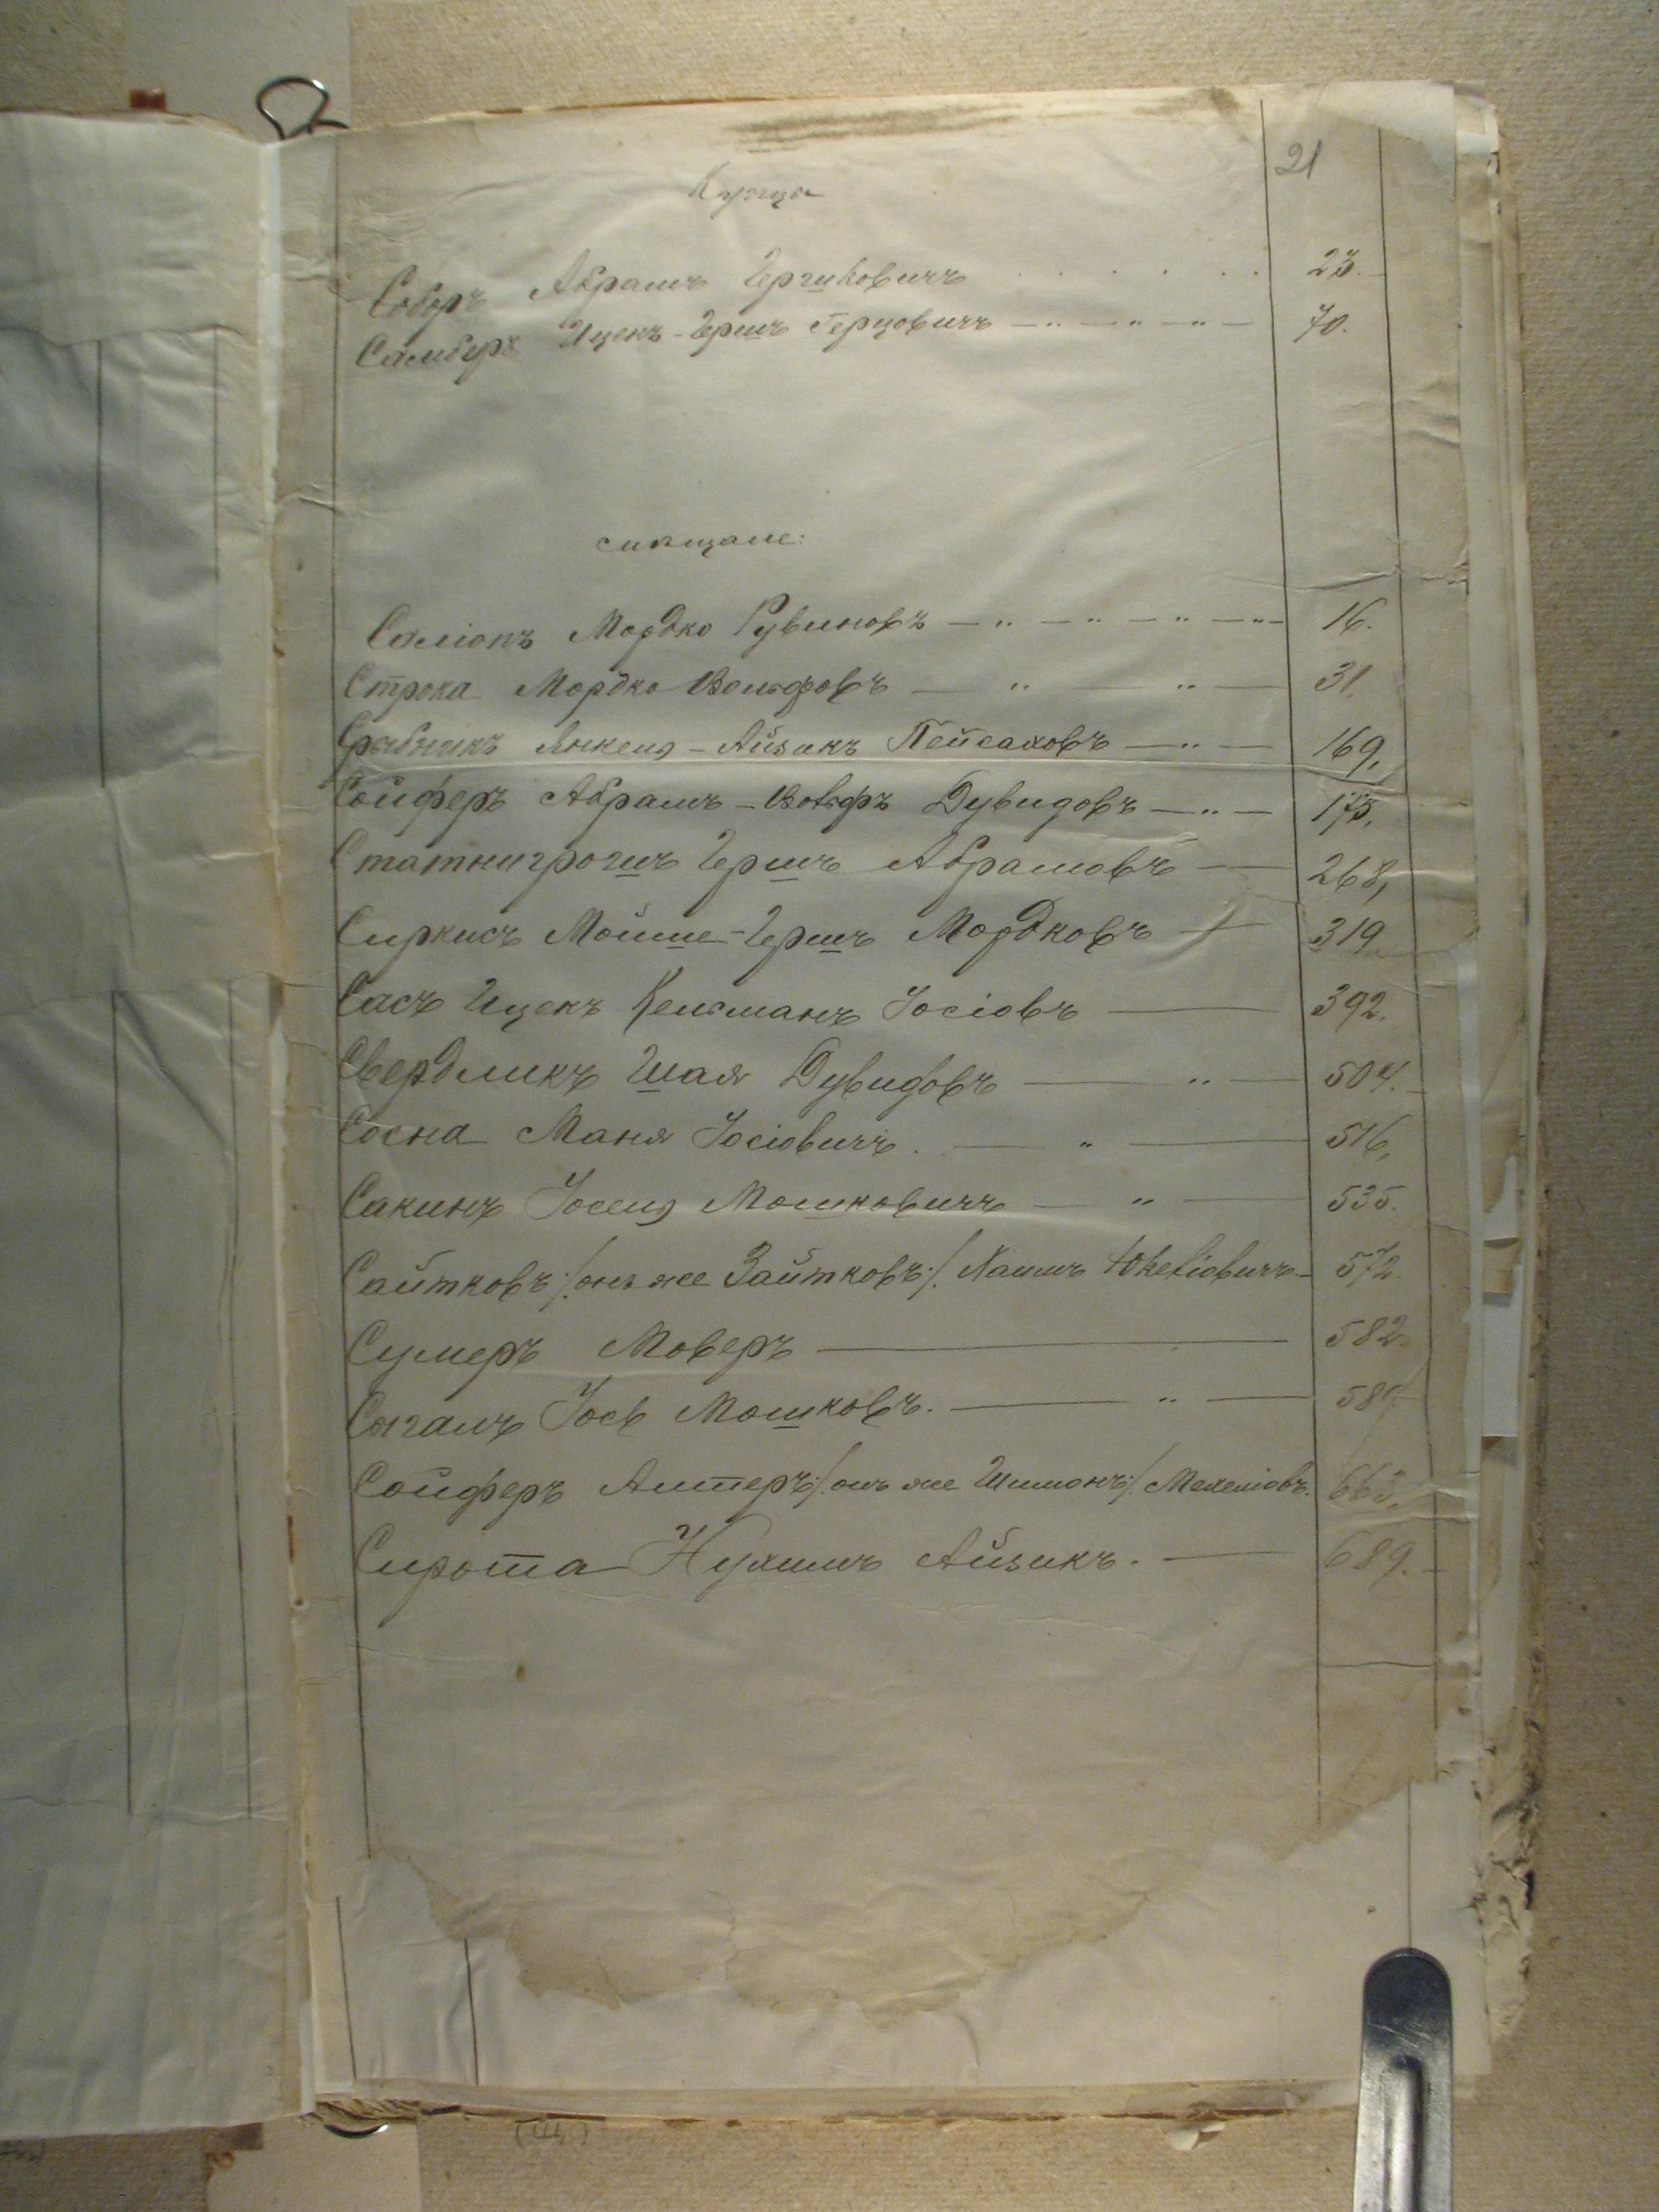 21
Купцы
Соборъ Абрамъ Гершковичъ 23.
Самберъ Ицекъ-Гершъ Герцовичъ 70.
мѣщане:
Саліонъ Мордко Рувиновъ 16.
Строка Мордко Вольфовъ 31.
Срыбникъ Янкель-Айзикъ Пейсаховъ 169,
Сойферъ Абрамъ-Вольфъ Дувидовъ 175,
Статнигрошъ Гершъ Абрамовъ 268,
Сиркисъ Мойше-Гершъ Мордковъ 319
Сасъ Ицекъ Кельманъ Іосіовъ 392.
Свердликъ Шая Дувидовъ 504.
Сосна Маня Іосіовичъ. 516,
Сакинъ Іосель Мошковичъ 535.
Сайтковъ /:онъ же Зайтковъ:/ Хаимъ 572.
Сумеръ Моверъ 582.
Сыгалъ Іось Мошковъ.
Сойферъ Алтеръ /:онъ же Шимонъ:/ Мехеліовъ.
Сирота Нухимъ Айзикъ. 689.